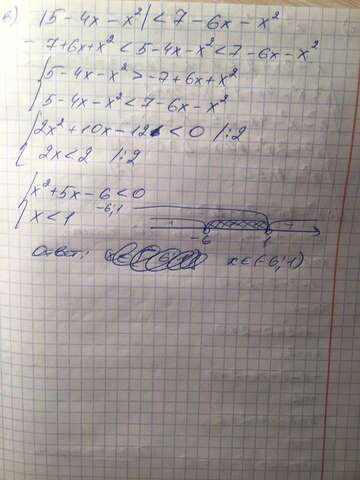 б) |5-4x-x²|<7-6x-x²
-7+6x+x²<5-4x-x²<7-6x-x²
{5-4x-x²>-7+6x+x²
5-4x-x²<7-6x-x²
{2x²+10x-12<0 /:2
2x<2 /:2
{x²+5x-6<0
-6;1
x<1
+ - +
-6 1
Ответ: x∈(-6;1)